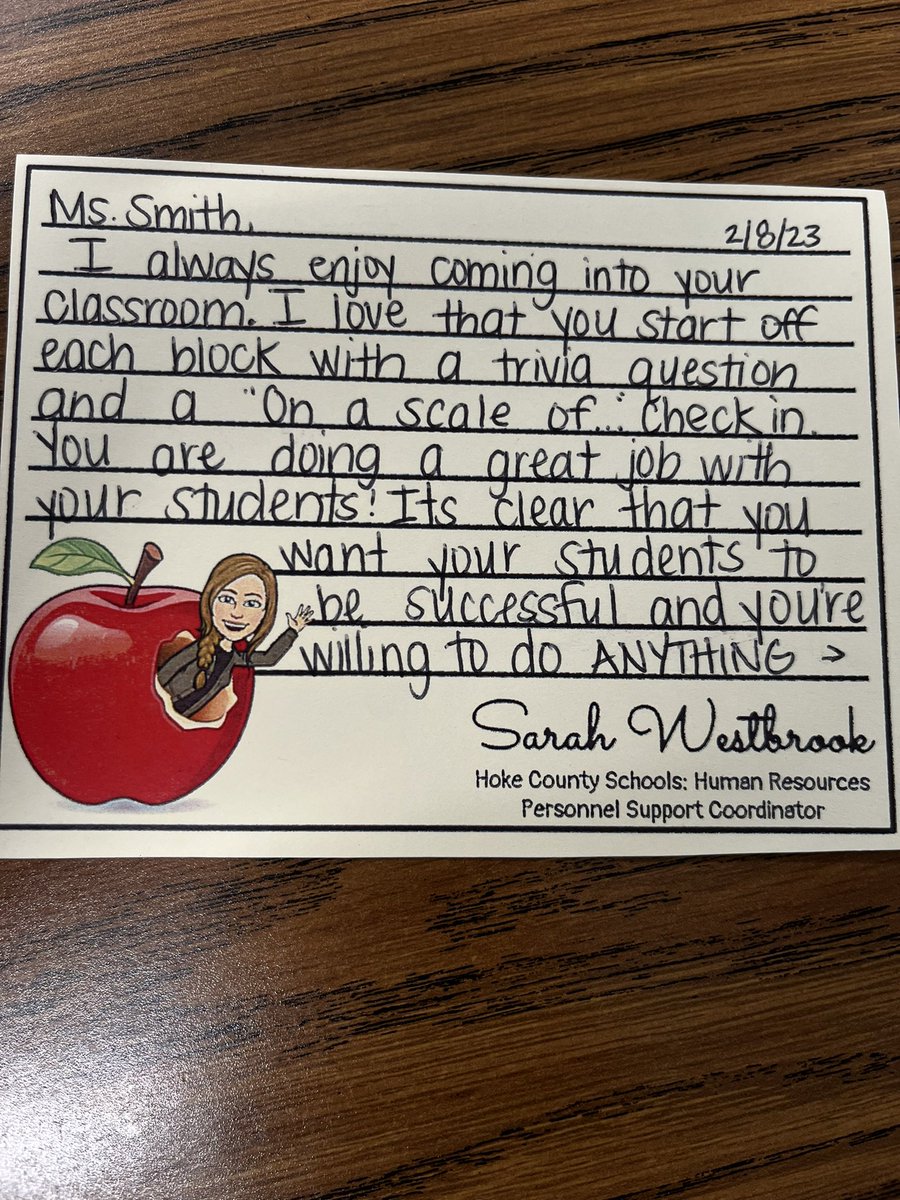 Ms. Smith,
2/8/23
I always enjoy coming into your
classroom. I love that you start off
each block with a trivia question
and a "On a scale of..." check in.
You are doing a great job with
your students! Its clear that you
want your students to
be successful and you're
willing to do ANYTHING >
Sarah Westbrook
Hoke County Schools: Human Resources
Personnel Support Coordinator